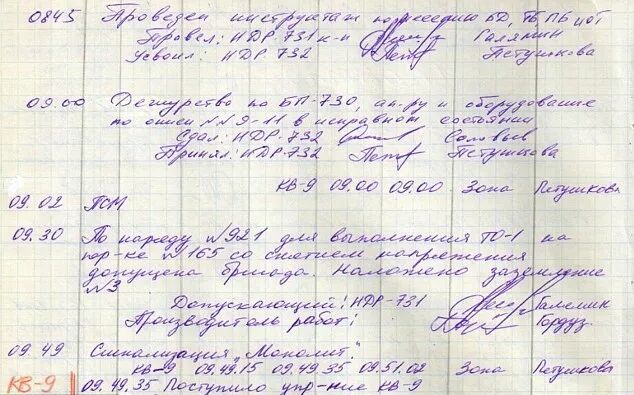 0845 Проведен инструктаж по несению БД, ТБ, ПБ
Провел: НДР-731 к-н Галямин
Усвоил: НДР 732 Петушкова
09.00 Дежурство по БП-730, ап-ру и оборудование
по описи №№9-11 в исправном состоянии
Сдал: НДР-732 Соловьев
Принял: НДР-732 Петушкова
КВ-9 09.00 09.00 Зона Петушкова
09.02 ПСМ
09.30 По наряду №921 для выполнения ТО-1 на
№165 со снятием напряжения
допущена бригада. Наложено заземление
№3
Допускающий: НДР-731 Галямин
Производитель работ:
09.49 Сигнализация "Монолит".
КВ-9 09.49.15 09.49.35 09.51.02 Зона Петушкова
КВ-9 09.49.35 Поступило упр-ние КВ-9